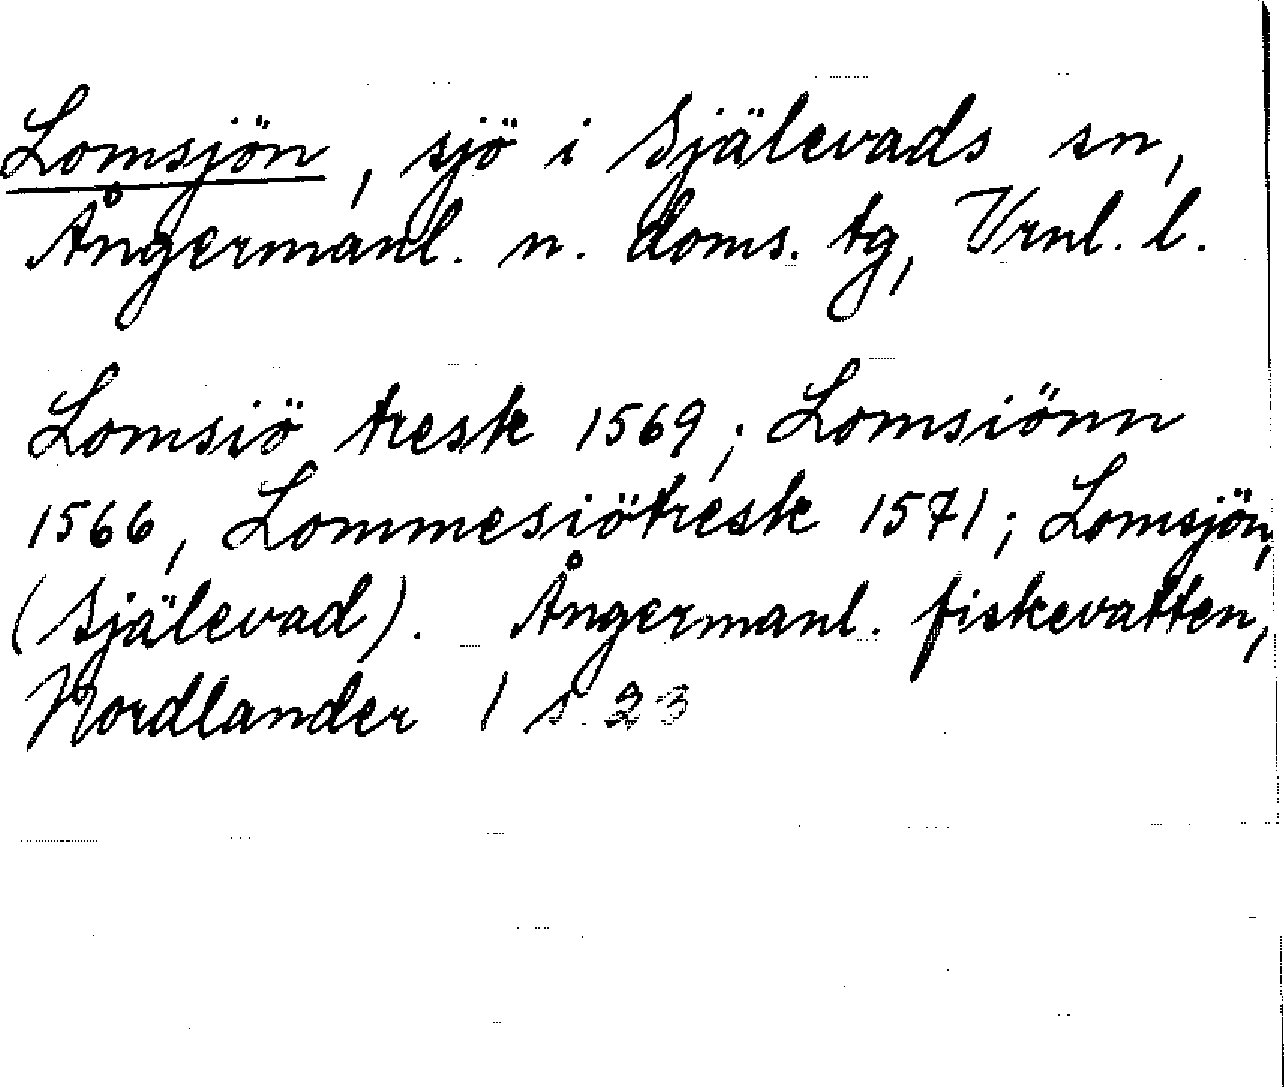 Lomsjön, sjö i Själevads sn,
Ångermanl. n. doms. tg, Vrnl. l.
Lomsiö tresk 1569; Lomsiönn
1566, Lommesiötresk 1571; Lomsjön,
(Själevad). Ångermanl. fiskevatten,
Nordlander 1 s. 23